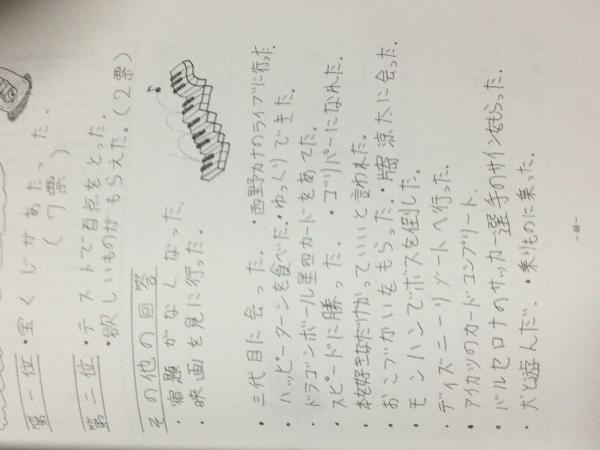 第一位・宝くじがあたった。
(7票)
第二位・テストで百点をとった。
・欲しいものがもらえた。(2票)
その他の回答
・宿題がなくなった。
・映画を見に行った。
・三代目に会った。・西野カナのライブに行った。
・ハッピーターンを食べた。・ゆっくりできた。
・ドラゴンボール星四カードをあてた。
・スピードに勝った。・ゴリパーになれた。
・本を好きなだけかっていいと言われた。
・おこづかいをもらった。・涼太に会った。
・モンハンでボスを倒した。
・ディズニーリゾートへ行った。
・アイカツのカードコンプリート。
・バルセロナのサッカー選手のサインをもらった。
・犬と遊んだ。・乗りものに乗った。